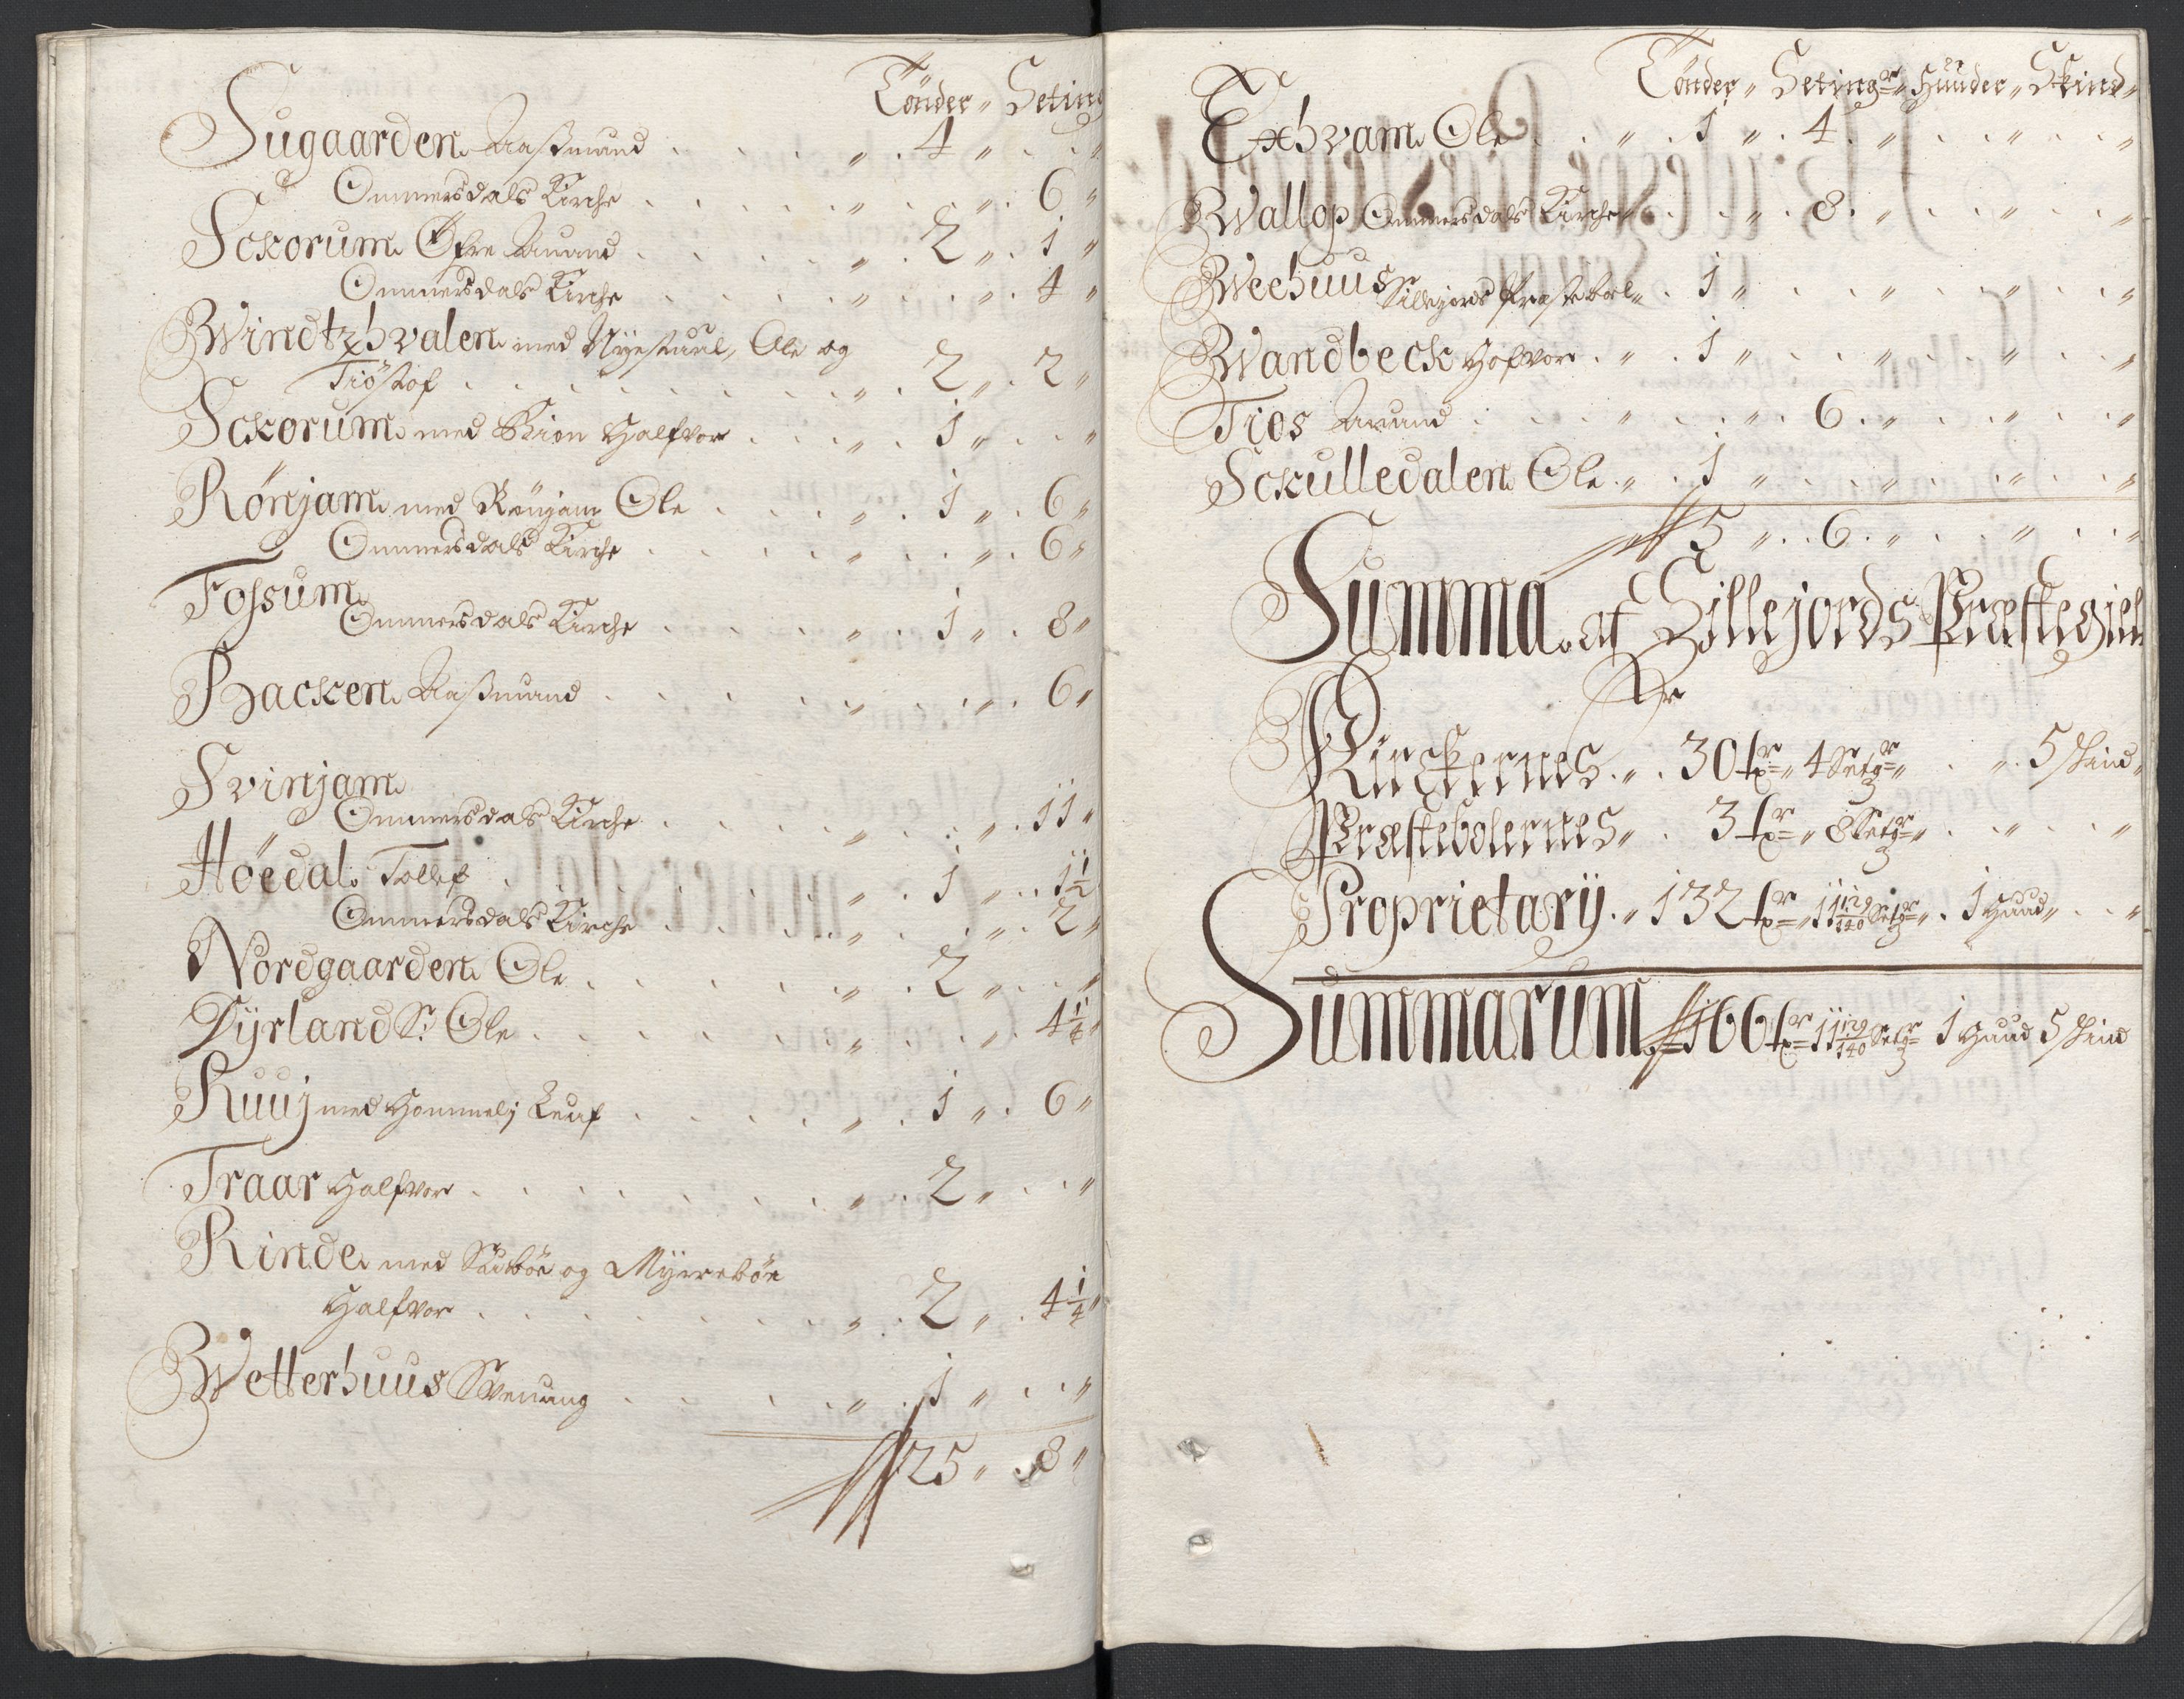 Tönder „ Seting
Sugaarden Aaßmund . . . „ . 4 „ . . „
Ommersdals Kirche . . . „ . . „ . 6 „
Sckorum Øfre Auund . . . „ . 2 „ . 1 „
Ommersdals Kirche . . . „ . . „ . 4 „
Windtzhvalen med Nÿestuul, Ole og
Tiøstof . . . „ . 2 „ . 2 „
Sckorum med Bion Halfvor . . . „ . 1 „ . . „
Rönjam med Rönjam Ole . . . „ . 1 „ . 6 „
Ommersdals Kirche . . . „ . . „ . 6 „
Fossum
Ommersdals Kirche . . . „ . 1 „ . 8 „
Backen Aaßmund . . . „ . . „ . 6 „
Svinjam
Ommersdals Kirche . . . „ . . „ . 11 „
Höedal Tollef . . . „ . 1 „ . 1 1/2
Ommersdals Kirche . . . „ . . „ . 2 „
Nordgaarden Ole . . . „ . 2 „ . . „
Dÿrland S: Ole . . . „ . . „ . 4 1/4 „
Ruuj med Hommelj Leuf . . . „ . 1 „ . 6 „
Traar Halfvor . . . „ . 2 „ . . „
Rinde med Sauböe og Mÿreböe
Halfvor . . . „ . 2 „ . 4 1/4 „
Wetterhuus Svenung . . . „ . 1 „ . . „
25 „ . 8 „
Tönder „ Setingr „ Huuder „ Skind „
Exhvam Ole . . „ . 1 „ . 4 . „ . . „ . . „
Wallop Ommersdals Kirche . . „ . 8 . „ . . „ . . „
Weehuus Sillejords Præstebol „ . 1 „ . . „ . . „ . . „
Wandbeck Hafvor . „ . 1 „ . . „ . . „ . . „
Tios Auund . . . „ . . „ . 6 . „ . . „ . . „
Sckulledalen Ole . „ . 1 „ . . „ . . „ . . „
5 „ . . 6 . „ . . „ . . „
Summa af Sillejords Præstegiel
Er
Kirckernes . „ . 30 tr „ 4 Setgr „ . . „ . 5 skind „
Præstebolernes „ . 3 tr „ 8 Setgr „ . . „ . . „
Proprietarÿ . „ 132 tr „ 11 129/140 Setgr „ . 1 Huud „ . . „
Summarum 166 tr 11 129/140 Setgr 1 Huud 5 skind